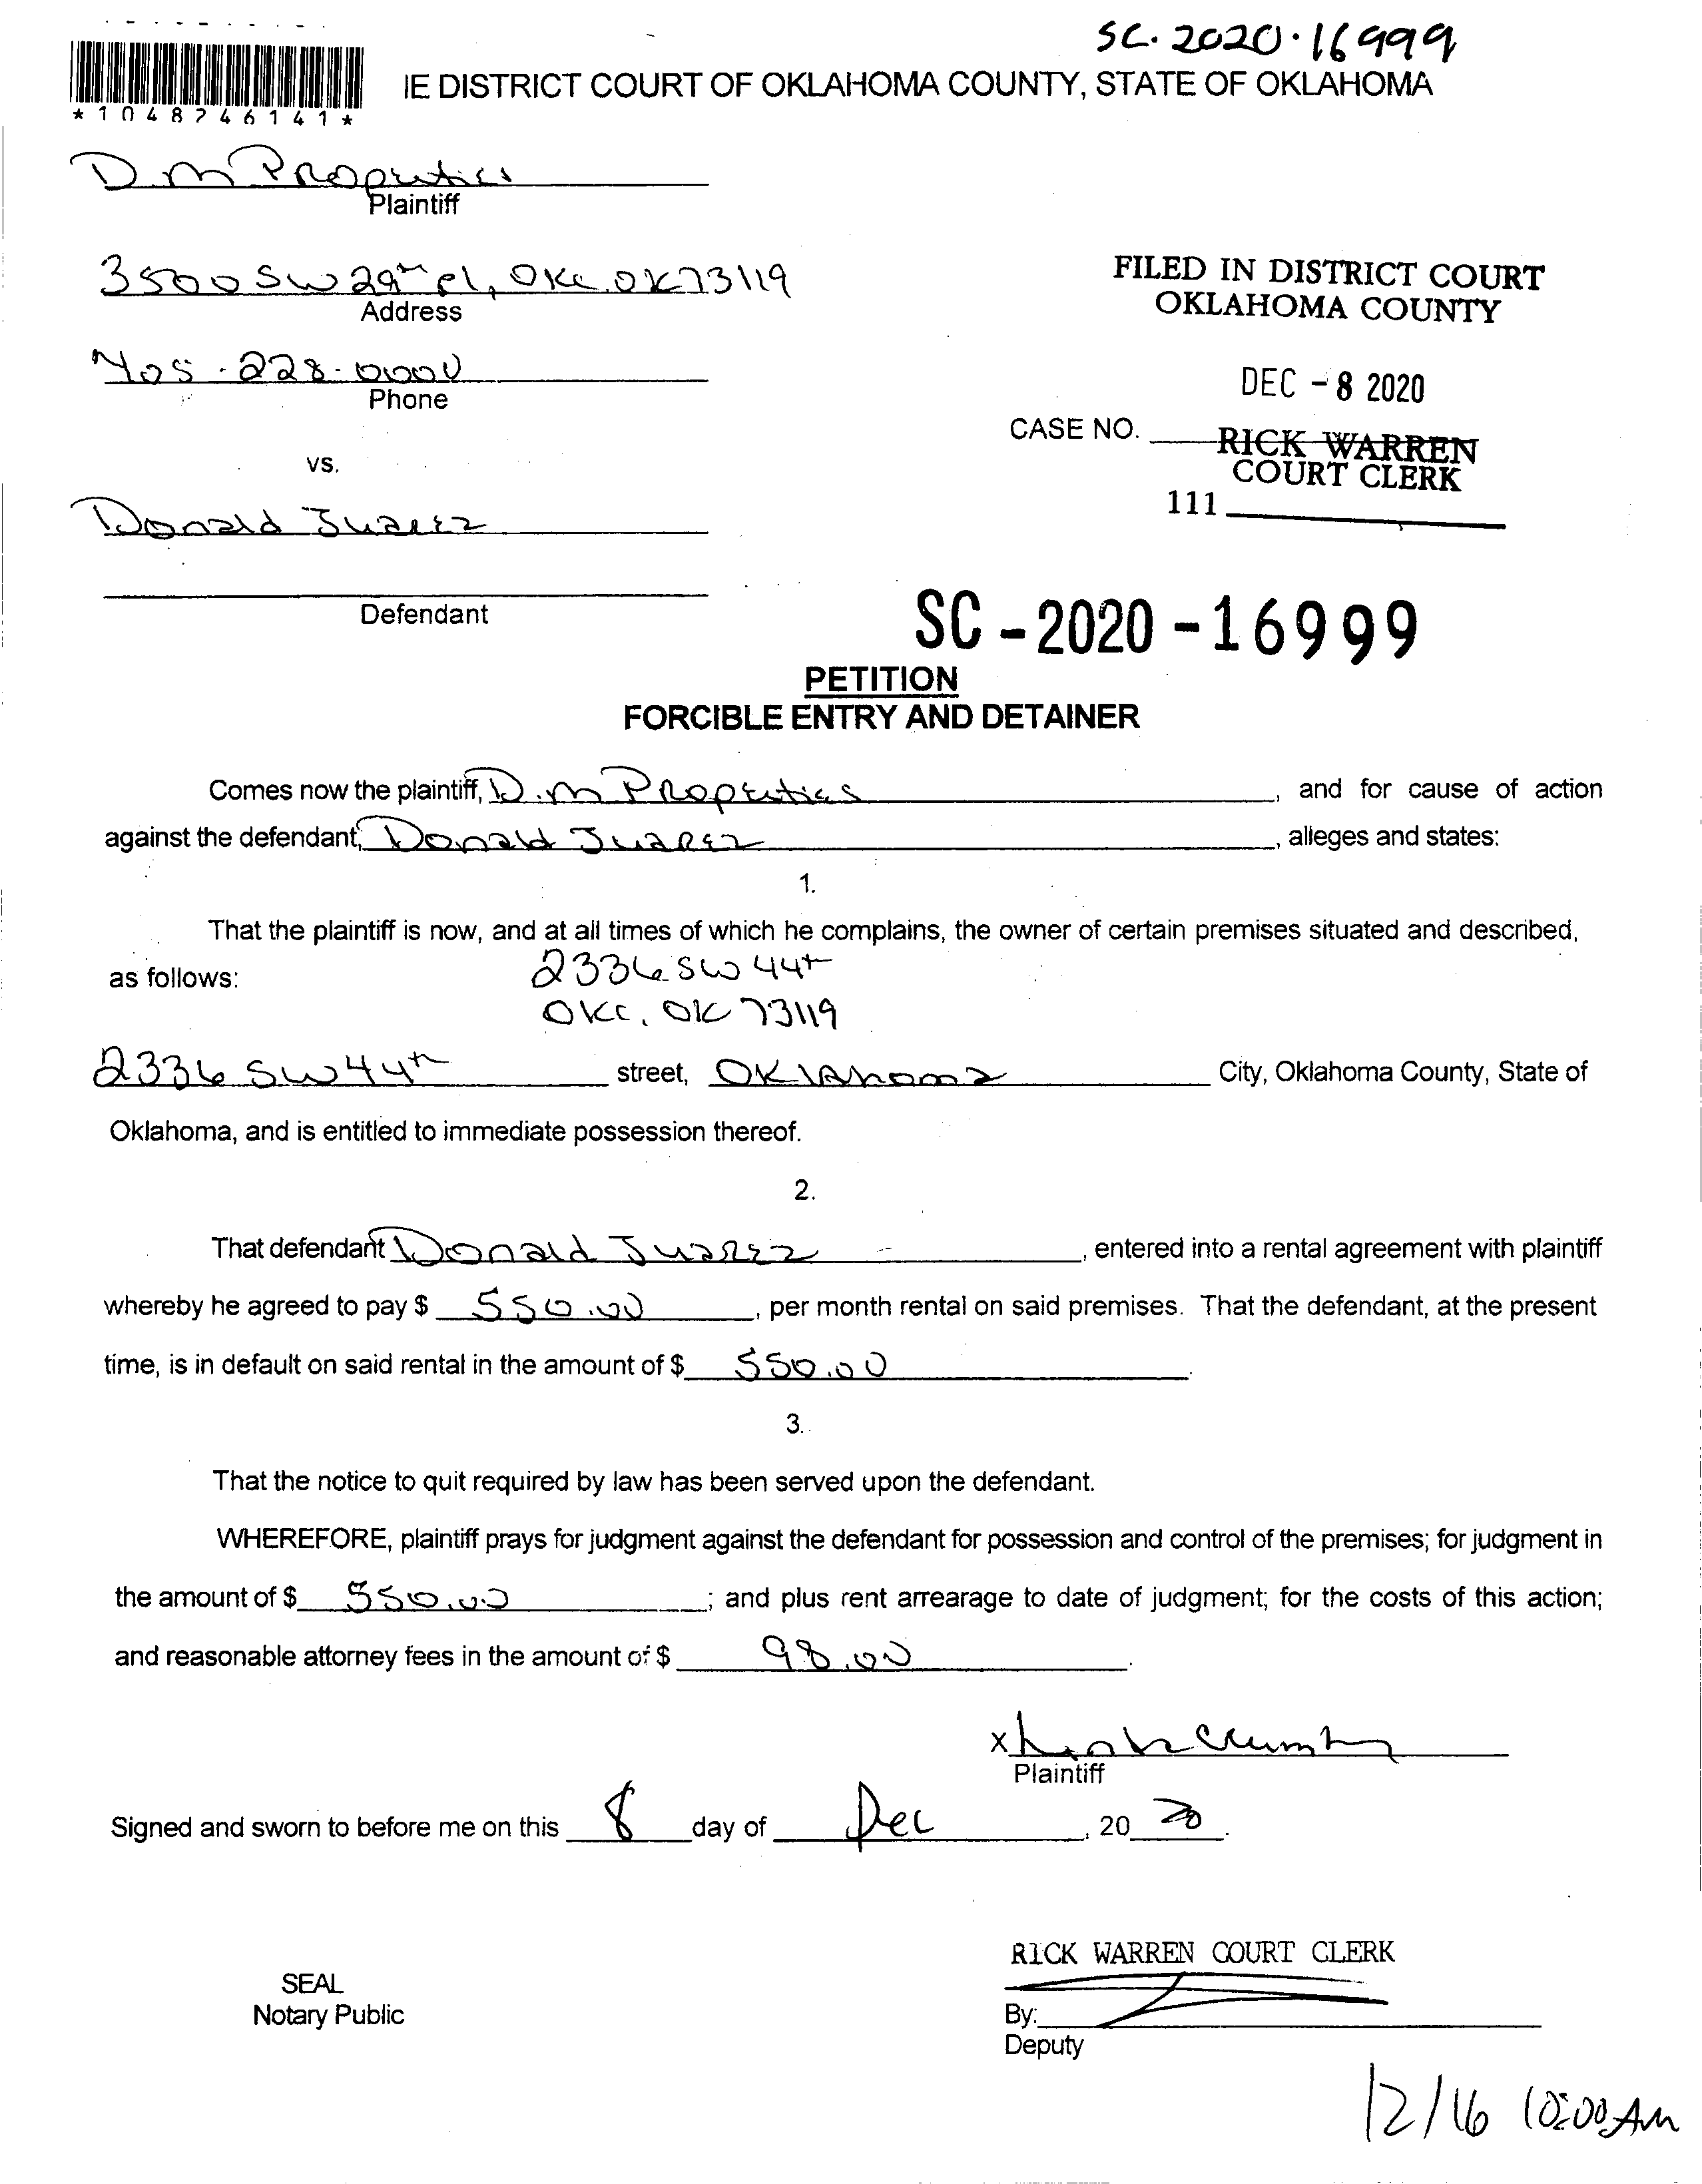 SC-2020-16999
IE DISTRICT COURT OF OKLAHOMA COUNTY, STATE OF OKLAHOMA
* 1 0 4 8 2 4 6 1 4 1 *
D.M Properties
Plaintiff
3500 SW 29th Pl, OKC. OK 73119
Address
405-228-0000
Phone
vs.
Donald Juarez
Defendant
FILED IN DISTRICT COURT
OKLAHOMA COUNTY
DEC - 8 2020
CASE NO.
RICK WARREN
COURT CLERK
111
SC - 2020 - 16999
PETITION
FORCIBLE ENTRY AND DETAINER
Comes now the plaintiff, D.M Properties, and for cause of action
against the defendant, Donald Juarez, alleges and states:
1.
That the plaintiff is now, and at all times of which he complains, the owner of certain premises situated and described,
as follows: 2336 SW 44th
OKC, OK 73119
2336 SW 44th street, Oklahoma City, Oklahoma County, State of
Oklahoma, and is entitled to immediate possession thereof.
2.
That defendant Donald Juarez, entered into a rental agreement with plaintiff
whereby he agreed to pay $ 550.00, per month rental on said premises. That the defendant, at the present
time, is in default on said rental in the amount of $ 550.00.
3.
That the notice to quit required by law has been served upon the defendant.
WHEREFORE, plaintiff prays for judgment against the defendant for possession and control of the premises; for judgment in
the amount of $ 550.00; and plus rent arrearage to date of judgment; for the costs of this action;
and reasonable attorney fees in the amount of $ 98.00.
x
Plaintiff
Signed and sworn to before me on this 8 day of Dec, 20 20.
RICK WARREN COURT CLERK
SEAL
Notary Public
By:
Deputy
12/16 10:00 AM